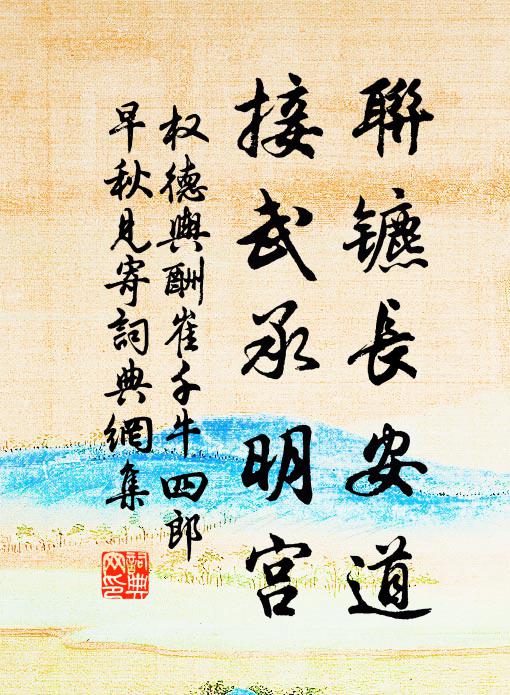 聯镳長安道
接武承明宮
权德輿酬崔千牛四郎
早秋見寄詞典網集
詞典
网印